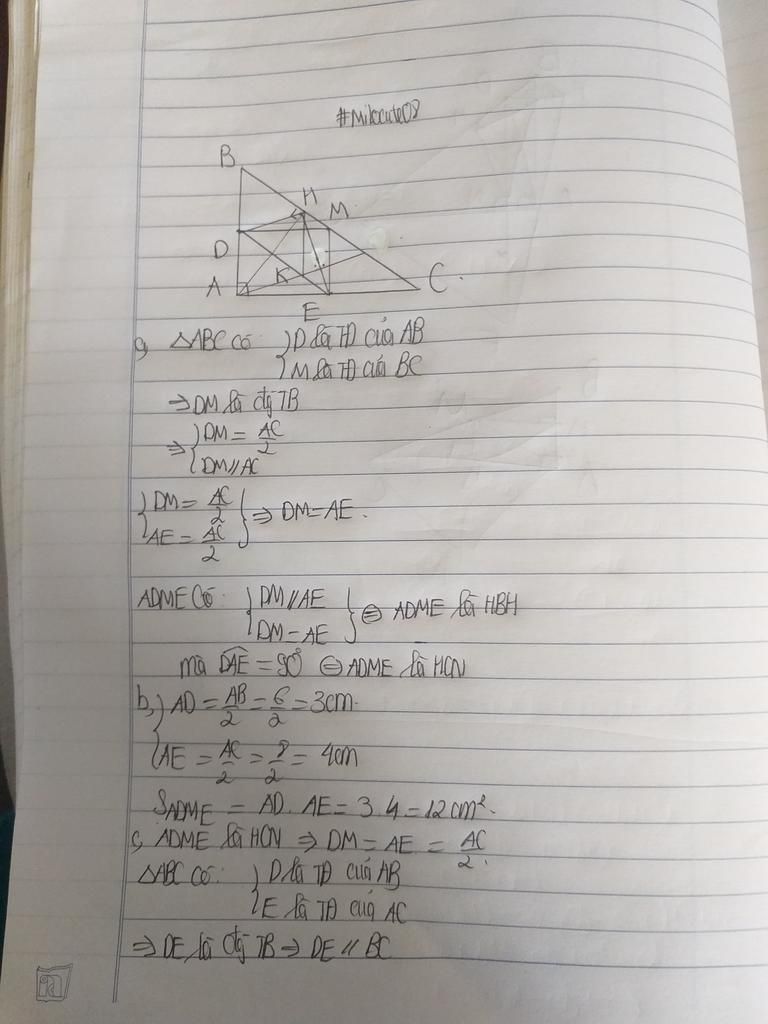 #Milocute08
B
H
M
D
A
K
C
E
a, △ABC có: { D là TĐ của AB
{ M là TĐ của BC
⇒ DM là đg TB
⇒ { DM = AC/2
{ DM // AC
{ DM = AC/2
{ AE = AC/2 } ⇒ DM = AE.
ADME Có: { DM // AE
{ DM = AE } ⇒ ADME là HBH
mà DAE = 90° ⇒ ADME là HCN
b, { AD = AB/2 = 6/2 = 3cm.
{ AE = AC/2 = 8/2 = 4cm
SADME = AD. AE = 3.4 = 12cm².
c, ADME là HCN ⇒ DM = AE = AC/2.
△ABC có: { D là TĐ của AB
{ E là TĐ của AC
⇒ DE là đg TB ⇒ DE // BC